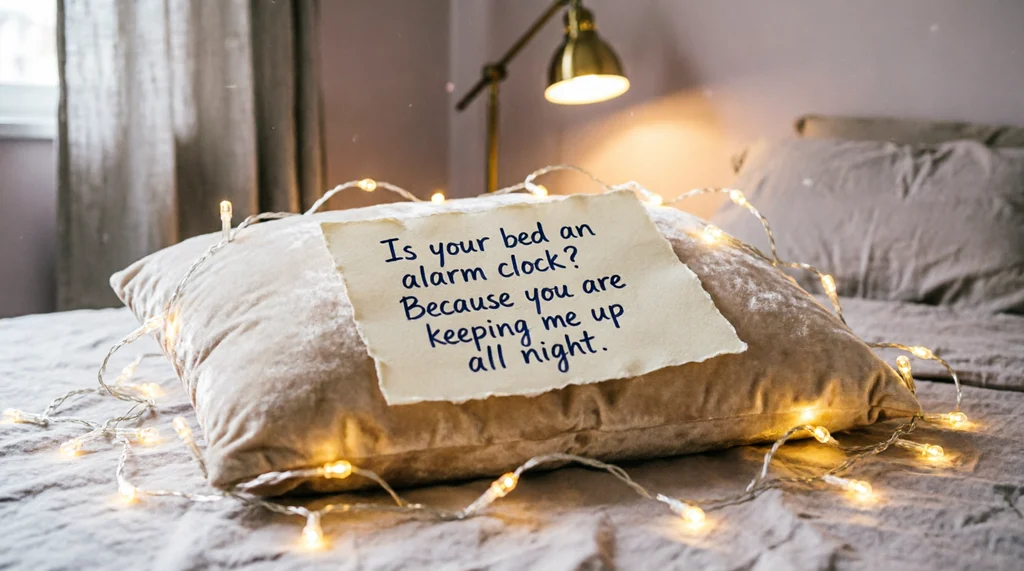 Is your bed an
alarm clock?
Because you are
keeping me up
all night.